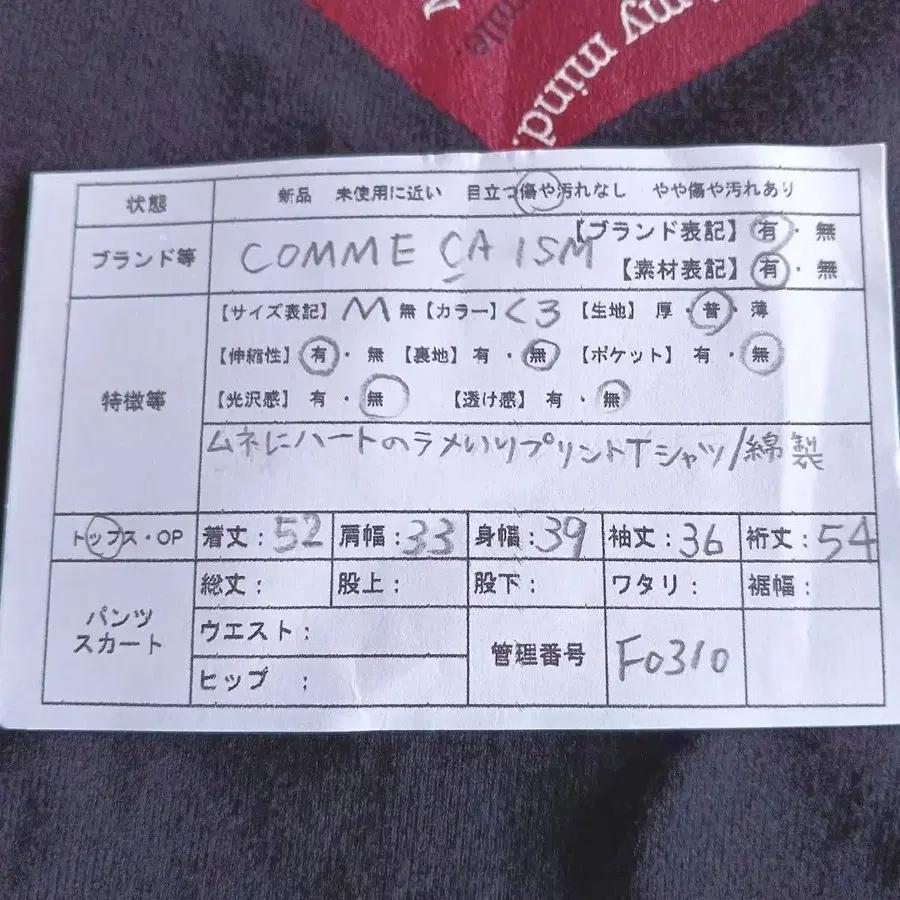 my mind.
smile.
状態 新品 未使用に近い 目立つ傷や汚れなし やや傷や汚れあり
ブランド等 COMME ÇA ISM 【ブランド表記】 有・無
【素材表記】 有・無
特徴等 【サイズ表記】 M 無 【カラー】 くろ 【生地】 厚・普・薄
【伸縮性】 有・無 【裏地】 有・無 【ポケット】 有・無
【光沢感】 有・無 【透け感】 有・無
ムネにハートのラメいりプリントTシャツ/綿製
トップス・OP 着丈:52 肩幅:33 身幅:39 袖丈:36 裄丈:54
パンツ スカート 総丈: 股上: 股下: ワタリ: 裾幅:
ウエスト: 管理番号 F0310
ヒップ :